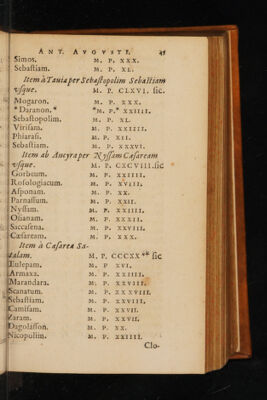 ANT. AVGVSTI. 45
Simos. M. P. XXX.
Sebastiam. M. P. XL.
Item à Tauia per Sebastopolim Sebastiam
vsque. M. P. CLXVI. sic.
Mogaron. M. P. XXX.
*Daranon.* *M. P.* XXIIII.
Sebastopolim. M. P. XL.
Virisam. M. P. XXIIII.
Phiarasi. M. P. XII.
Sebastiam. M. P. XXXVI.
Item ab Ancyra per Nyssam Cæsaream
vsque. M. P. CXCVIII. sic
Gorbeum. M. P. XXIIII.
Rosologiacum. M. P. XVIII.
Asponam. M. P. XX.
Parnassum. M. P. XXII.
Nyssam. M. P. XXIIII.
Osianam. M. P. XXXII.
Saccasena. M. P. XXVIII.
Cæsaream. M. P. XXX.
Item à Cæsarea Sa-
talam. M. P. CCCXX** sic
Eulepam. M. P. XVI.
Armaxa. M. P. XXIIII.
Marandara. M. P. XXVIII.
Scanatum. M. P. XXXVIII.
Sebastiam. M. P. XXVIII.
Camisam. M. P. XXVII.
Zaram. M. P. XXVII.
Dagolasson. M. P. XX.
Nicopolim. M. P. XXIIII.
Clo-